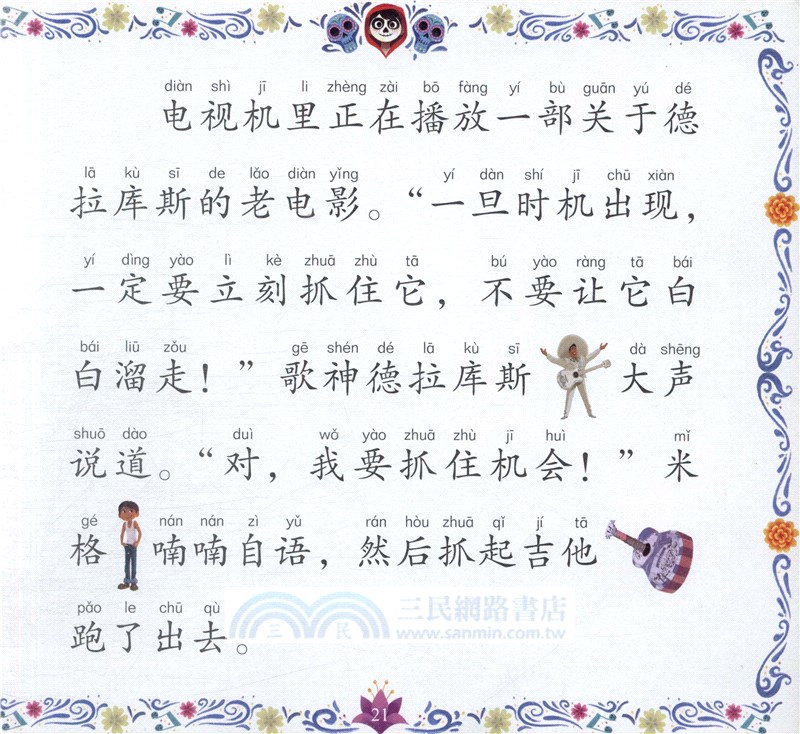 diàn shì jī li zhèng zài bō fàng yí bù guān yú dé
电视机里正在播放一部关于德
lā kù sī de lǎo diàn yǐng yí dàn shí jī chū xiàn
拉库斯的老电影。“一旦时机出现，
yí dìng yào lì kè zhuā zhù tā bú yào ràng tā bái
一定要立刻抓住它，不要让它白
bái liū zǒu gē shén dé lā kù sī dà shēng
白溜走！”歌神德拉库斯大声
shuō dào duì wǒ yào zhuā zhù jī huì mǐ
说道。“对，我要抓住机会！”米
gé nán nán zì yǔ rán hòu zhuā qǐ jí tā
格喃喃自语，然后抓起吉他
pǎo le chū qù
跑了出去。
三民網路書店
三民
www.sanmin.com.tw
21